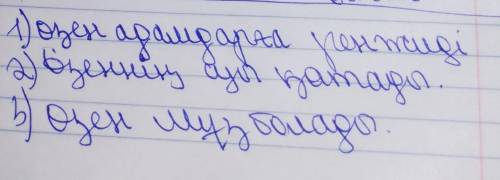 1) өзен адамдарға ренжиді
2) Өзеннің суы қатады.
3) Өзен мұз болады.